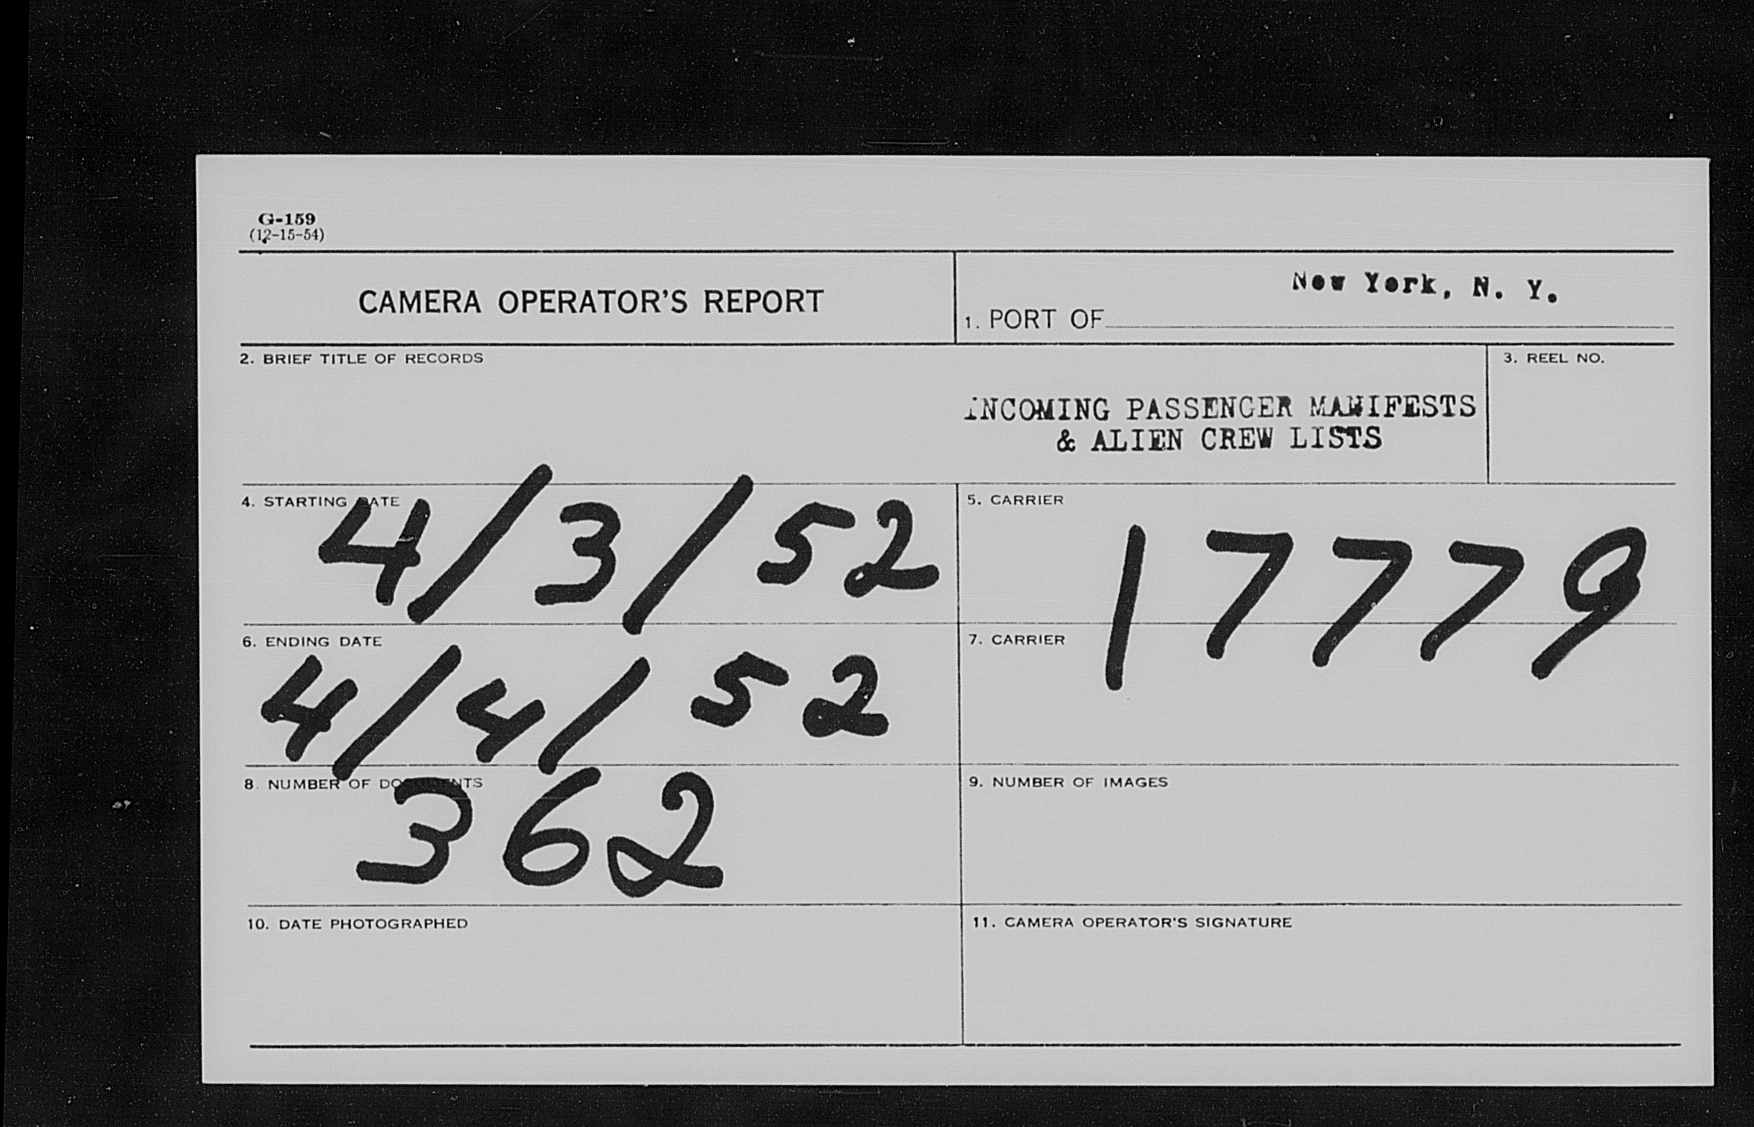 G-159
(12-15-54)
CAMERA OPERATOR'S REPORT
1. PORT OF New York, N. Y.
2. BRIEF TITLE OF RECORDS
3. REEL NO.
INCOMING PASSENGER MANIFESTS
& ALIEN CREW LISTS
4. STARTING DATE
4/3/52
5. CARRIER
17779
6. ENDING DATE
4/4/52
7. CARRIER
8. NUMBER OF DOCUMENTS
362
9. NUMBER OF IMAGES
10. DATE PHOTOGRAPHED
11. CAMERA OPERATOR'S SIGNATURE